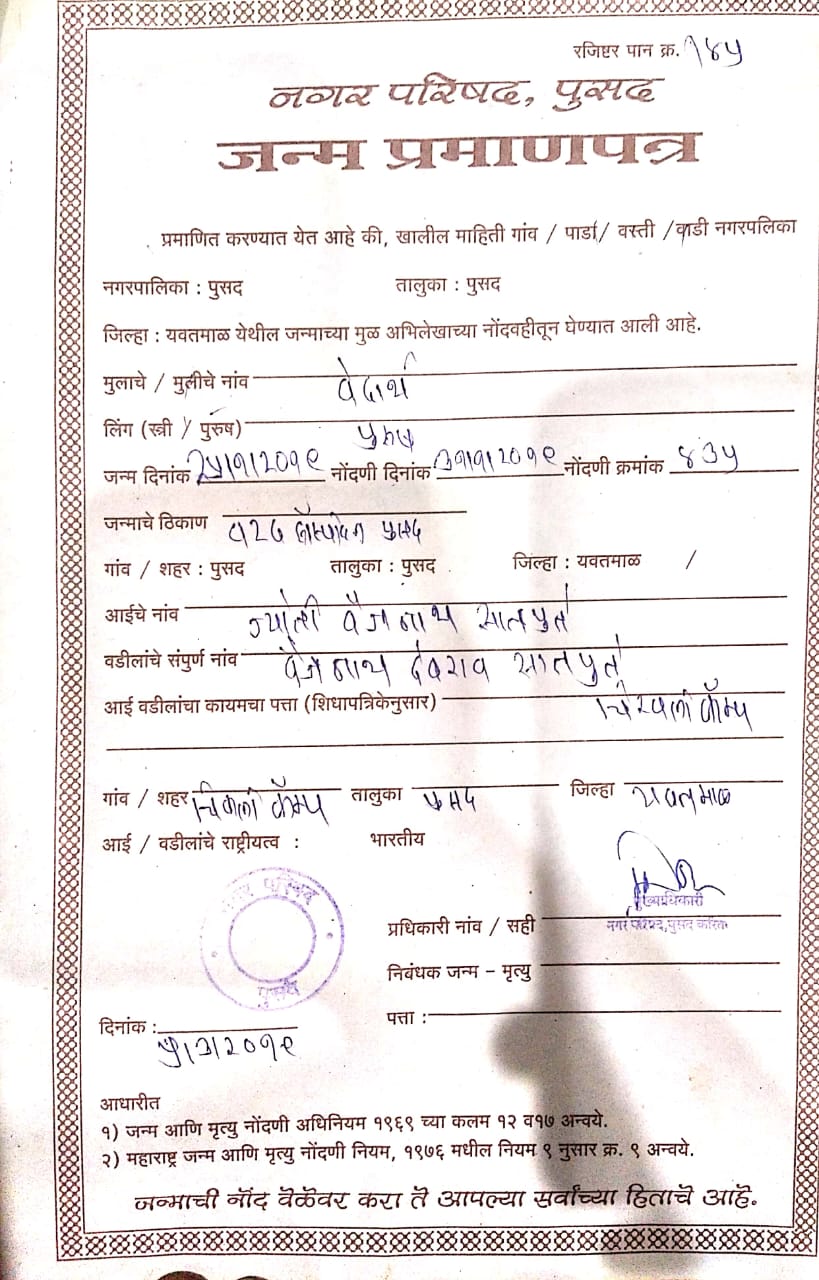 रजिष्टर पान क्र. १४५
नगर परिषद, पुसद
जन्म प्रमाणपत्र
प्रमाणित करण्यात येत आहे की, खालील माहिती गांव / पार्डा/ वस्ती /वाडी नगरपलिका
नगरपालिका : पुसद तालुका : पुसद
जिल्हा : यवतमाळ येथील जन्माच्या मुळ अभिलेखाच्या नोंदवहीतून घेण्यात आली आहे.
मुलाचे / मुलीचे नांव वेदार्थ
लिंग (स्त्री / पुरुष) पुरुष
जन्म दिनांक नोंदणी दिनांक नोंदणी क्रमांक ४३५
जन्माचे ठिकाण पुसद
गांव / शहर : पुसद तालुका : पुसद जिल्हा : यवतमाळ /
आईचे नांव ज्योती वैजनाथ सातपुते
वडीलांचे संपुर्ण नांव वैजनाथ देवराव सातपुते
आई वडीलांचा कायमचा पत्ता (शिधापत्रिकेनुसार) कॅम्प
गांव / शहर कॅम्प तालुका पुसद जिल्हा यवतमाळ
आई / वडीलांचे राष्ट्रीयत्व : भारतीय
नगर परिषद
पुसद
मुख्याधिकारी
प्रधिकारी नांव / सही
नगर परिषद,पुसद करिता
निबंधक जन्म – मृत्यु
पत्ता :
दिनांक :
आधारीत
१) जन्म आणि मृत्यु नोंदणी अधिनियम १९६९ च्या कलम १२ व१७ अन्वये.
२) महाराष्ट्र जन्म आणि मृत्यु नोंदणी नियम, १९७६ मधील नियम ९ नुसार क्र. ९ अन्वये.
जन्माची नोंद वेळेवर करा ते आपल्या सर्वांच्या हिताचे आहे.